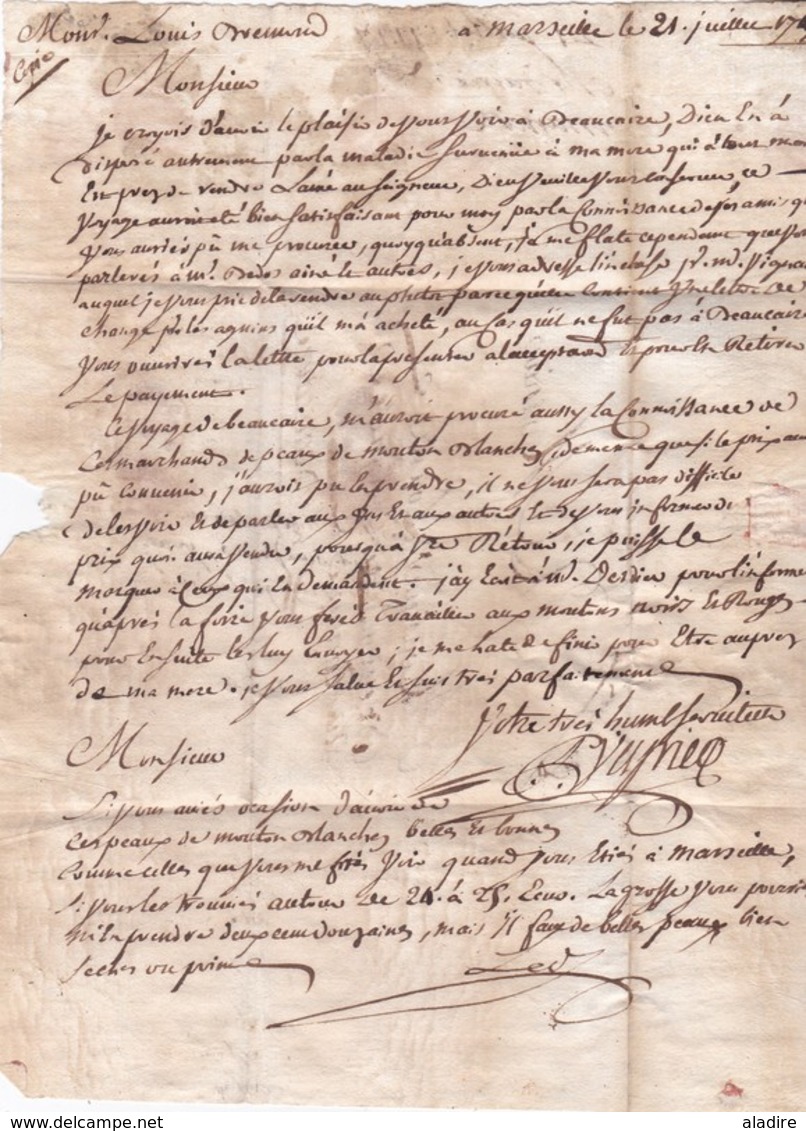 Monsr. Louis à marseille le 21. juillet 17
Copie
Monsieur
je croyois d'avoir le plaisir de vous voir à Beaucaire, Dieu En à
disposé autrement par la maladie survenüe à ma mere qui à tout mom
Est prez de rendre L'ame au seigneur, Dieu veuille vous conserver, ce
voyage auroit eté bien satisfaisant pour moy par la Connoissance de vos amis q
vous auriés pû me procurer, quoyqu'absent, je me flate cependant que vous
parlerés à Mr. ainé le autres, je vous adresse l'incluse pr. mr. Vigna
auquel je vous prie de la rendre au plutot parce qu'elle Contient Une lettre de
change pr. les agnins qu'il m'a acheté, au Cas qu'il ne fut pas à Beaucaire
vous ouvrirés la lettre pour la presenter à l'acceptation Et pour En Retirer
Le payement.
Ce voyage de beaucaire, m'auroit procuré aussy la Connoissance de
Ces marchands de peaux de mouton blanches, de meme que si le prix au
pû convenir, j'aurois pu En prendre, il ne vous sera pas difficile
de les voir Et de parler aux uns Et aux autres Et de vous informer du
prix qu'on aura vendu, pour qu'à vre. Retour, je puisse le
marquer à Ceux qui En demandent. j'ay Ecrit à Mr. pour l'informer
qu'aprés la foire vous ferés Travailler aux moutons noirs Et Rouges
pour Ensuite les luy Envoyer; je me hate de finir pour Etre auprez
de ma mere. je vous salue Et suis tres parfaitement
Votre tres humb. serviteur
Monsieur
Si vous aviés ocasion d'avoir de
Ces peaux de mouton blanches belles Et bonnes
Comme celles que vous me fites voir quand vous Etiés à marseille,
si vous les trouviés autour de 24. à 25. Ecus. La grosse vous pourriés
m'En prendre deux cent douzaines, mais il faut de belles peaux bien
seches ou